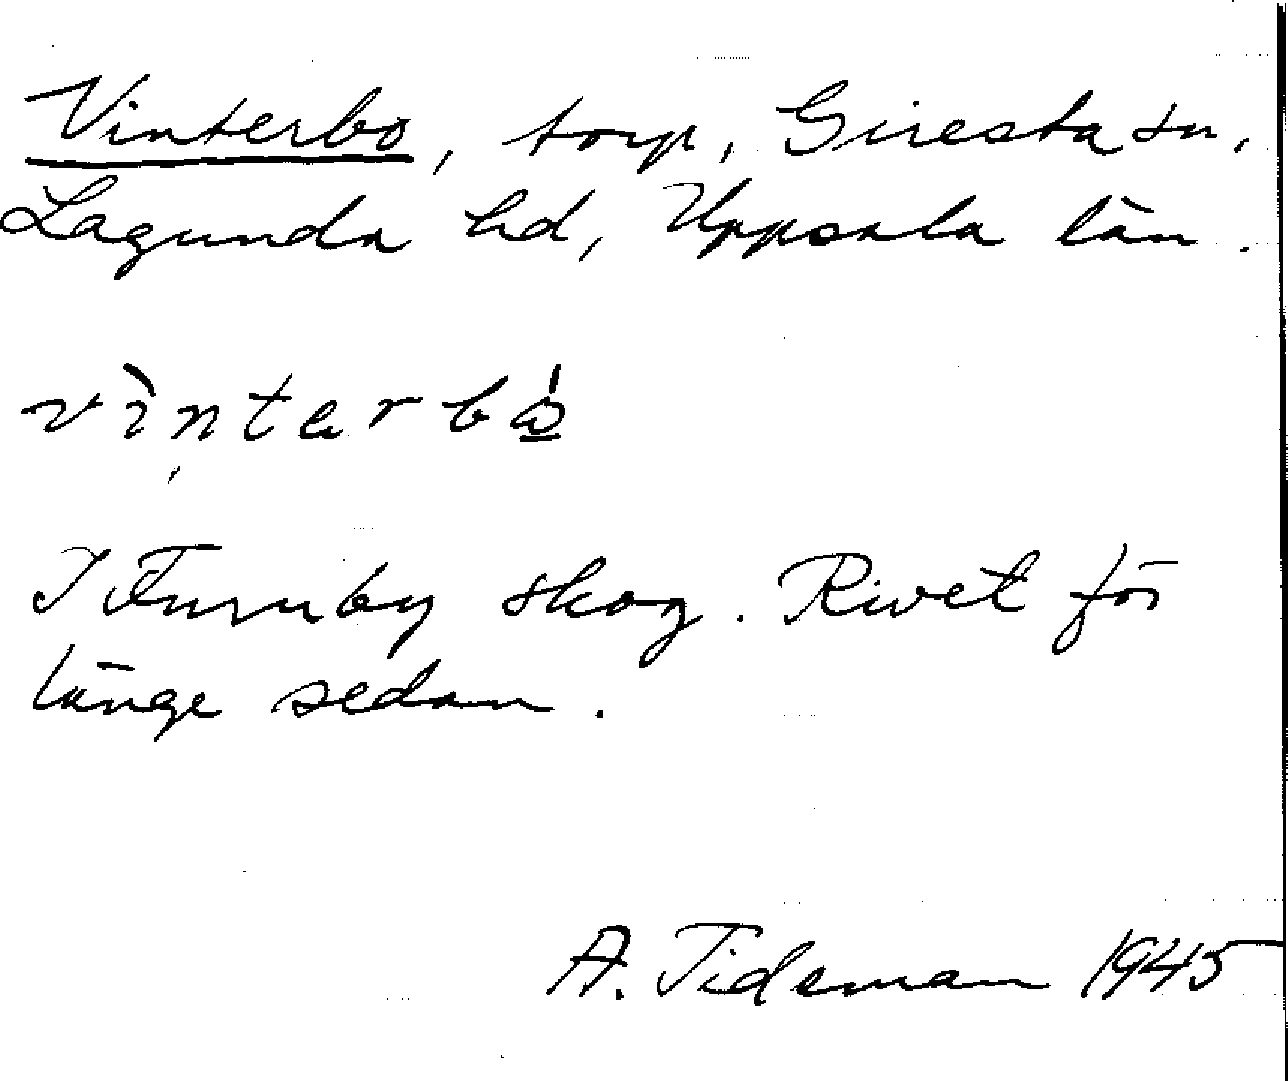 Vinterbo, torp, Giresta sn,
Lagunda hd, Uppsala län.
vìnterbó̲
I Furuby skog. Rivet för
länge sedan.
A. Tideman 1945